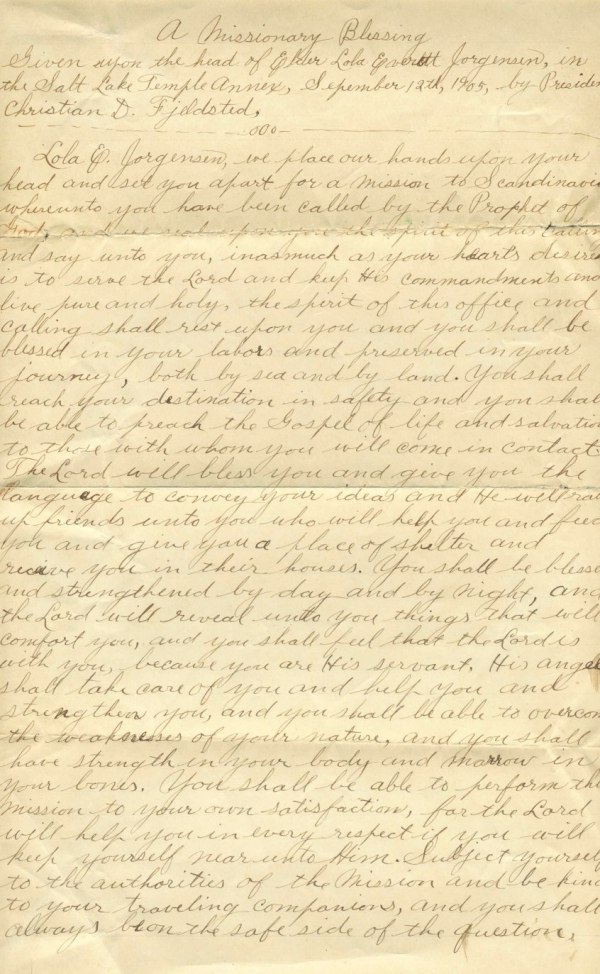 A Missionary Blessing
Given upon the head of Elder Lola Everett Jorgensen, in
the Salt Lake Temple Annex, Sepember 12th, 1905, by Presiden
Christian D. Fjeldsted,
-ooo-
Lola E. Jorgensen, we place our hands upon your
head and set you apart for a mission to Scandinavia
whereunto you have been called by the Prophet of
God, and we seal upon you the spirit of this calling
and say unto you, inasmuch as your hearts desire
is to serve the Lord and keep His commandments and
live pure and holy, the spirit of this office and
calling shall rest upon you and you shall be
blessed in your labors and preserved in your
journey, both by sea and by land. You shall
reach your destination in safety and you shall
be able to preach the Gospel of life and salvation
to those with whom you will come in contact.
The Lord will bless you and give you the
language to convey your ideas and He will rai
up friends unto you who will help you and feed
you and give you a place of shelter and
receive you in their houses. You shall be blesse
and strengthened by day and by night, and
the Lord will reveal unto you things that will
comfort you, and you shall feel that the Lord is
with you, because you are His servant. His angel
shall take care of you and help you and
strengthen you, and you shall be able to overcom
the weaknesses of your nature, and you shall
have strength in your body and marrow in
your bones. You shall be able to perform thi
Mission to your own satisfaction, for the Lord
will help you in every respect if you will
keep yourself near unto Him. Subject yourself
to the authorities of the Mission and be kind
to your traveling companions, and you shall
always be on the safe side of the question.